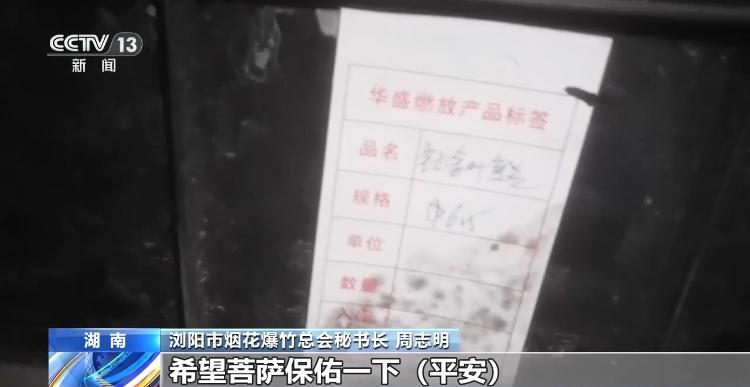 CCTV 13
新闻
华盛燃放产品标签
品名
规格
单位
数量
湖南
浏阳市烟花爆竹总会秘书长 周志明
希望菩萨保佑一下（平安）